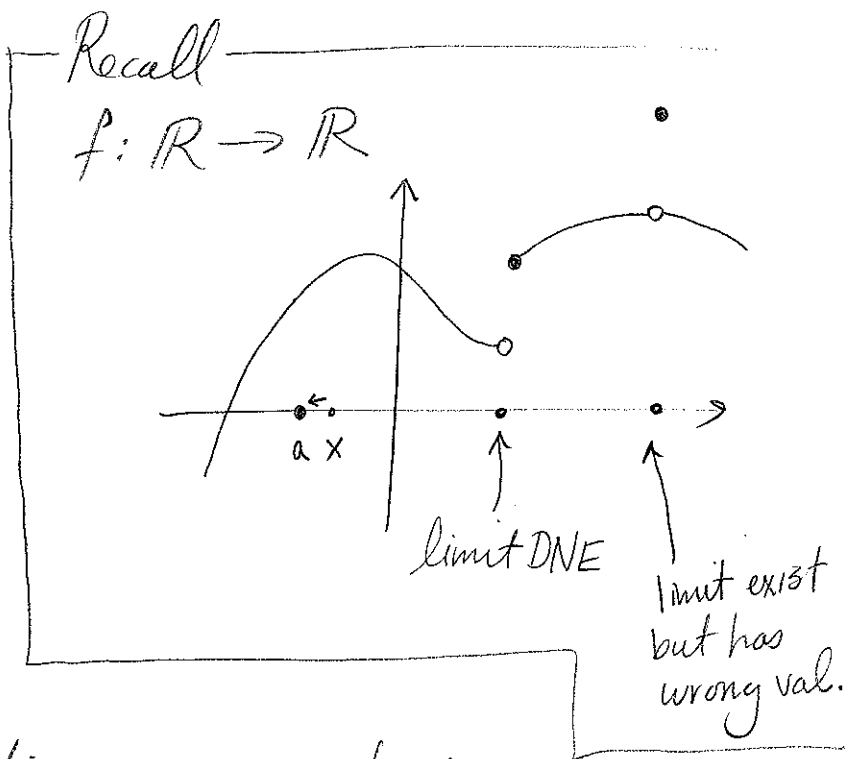 Recall
f: ℝ → ℝ
a x
limit DNE
limit exist
but has
wrong val.